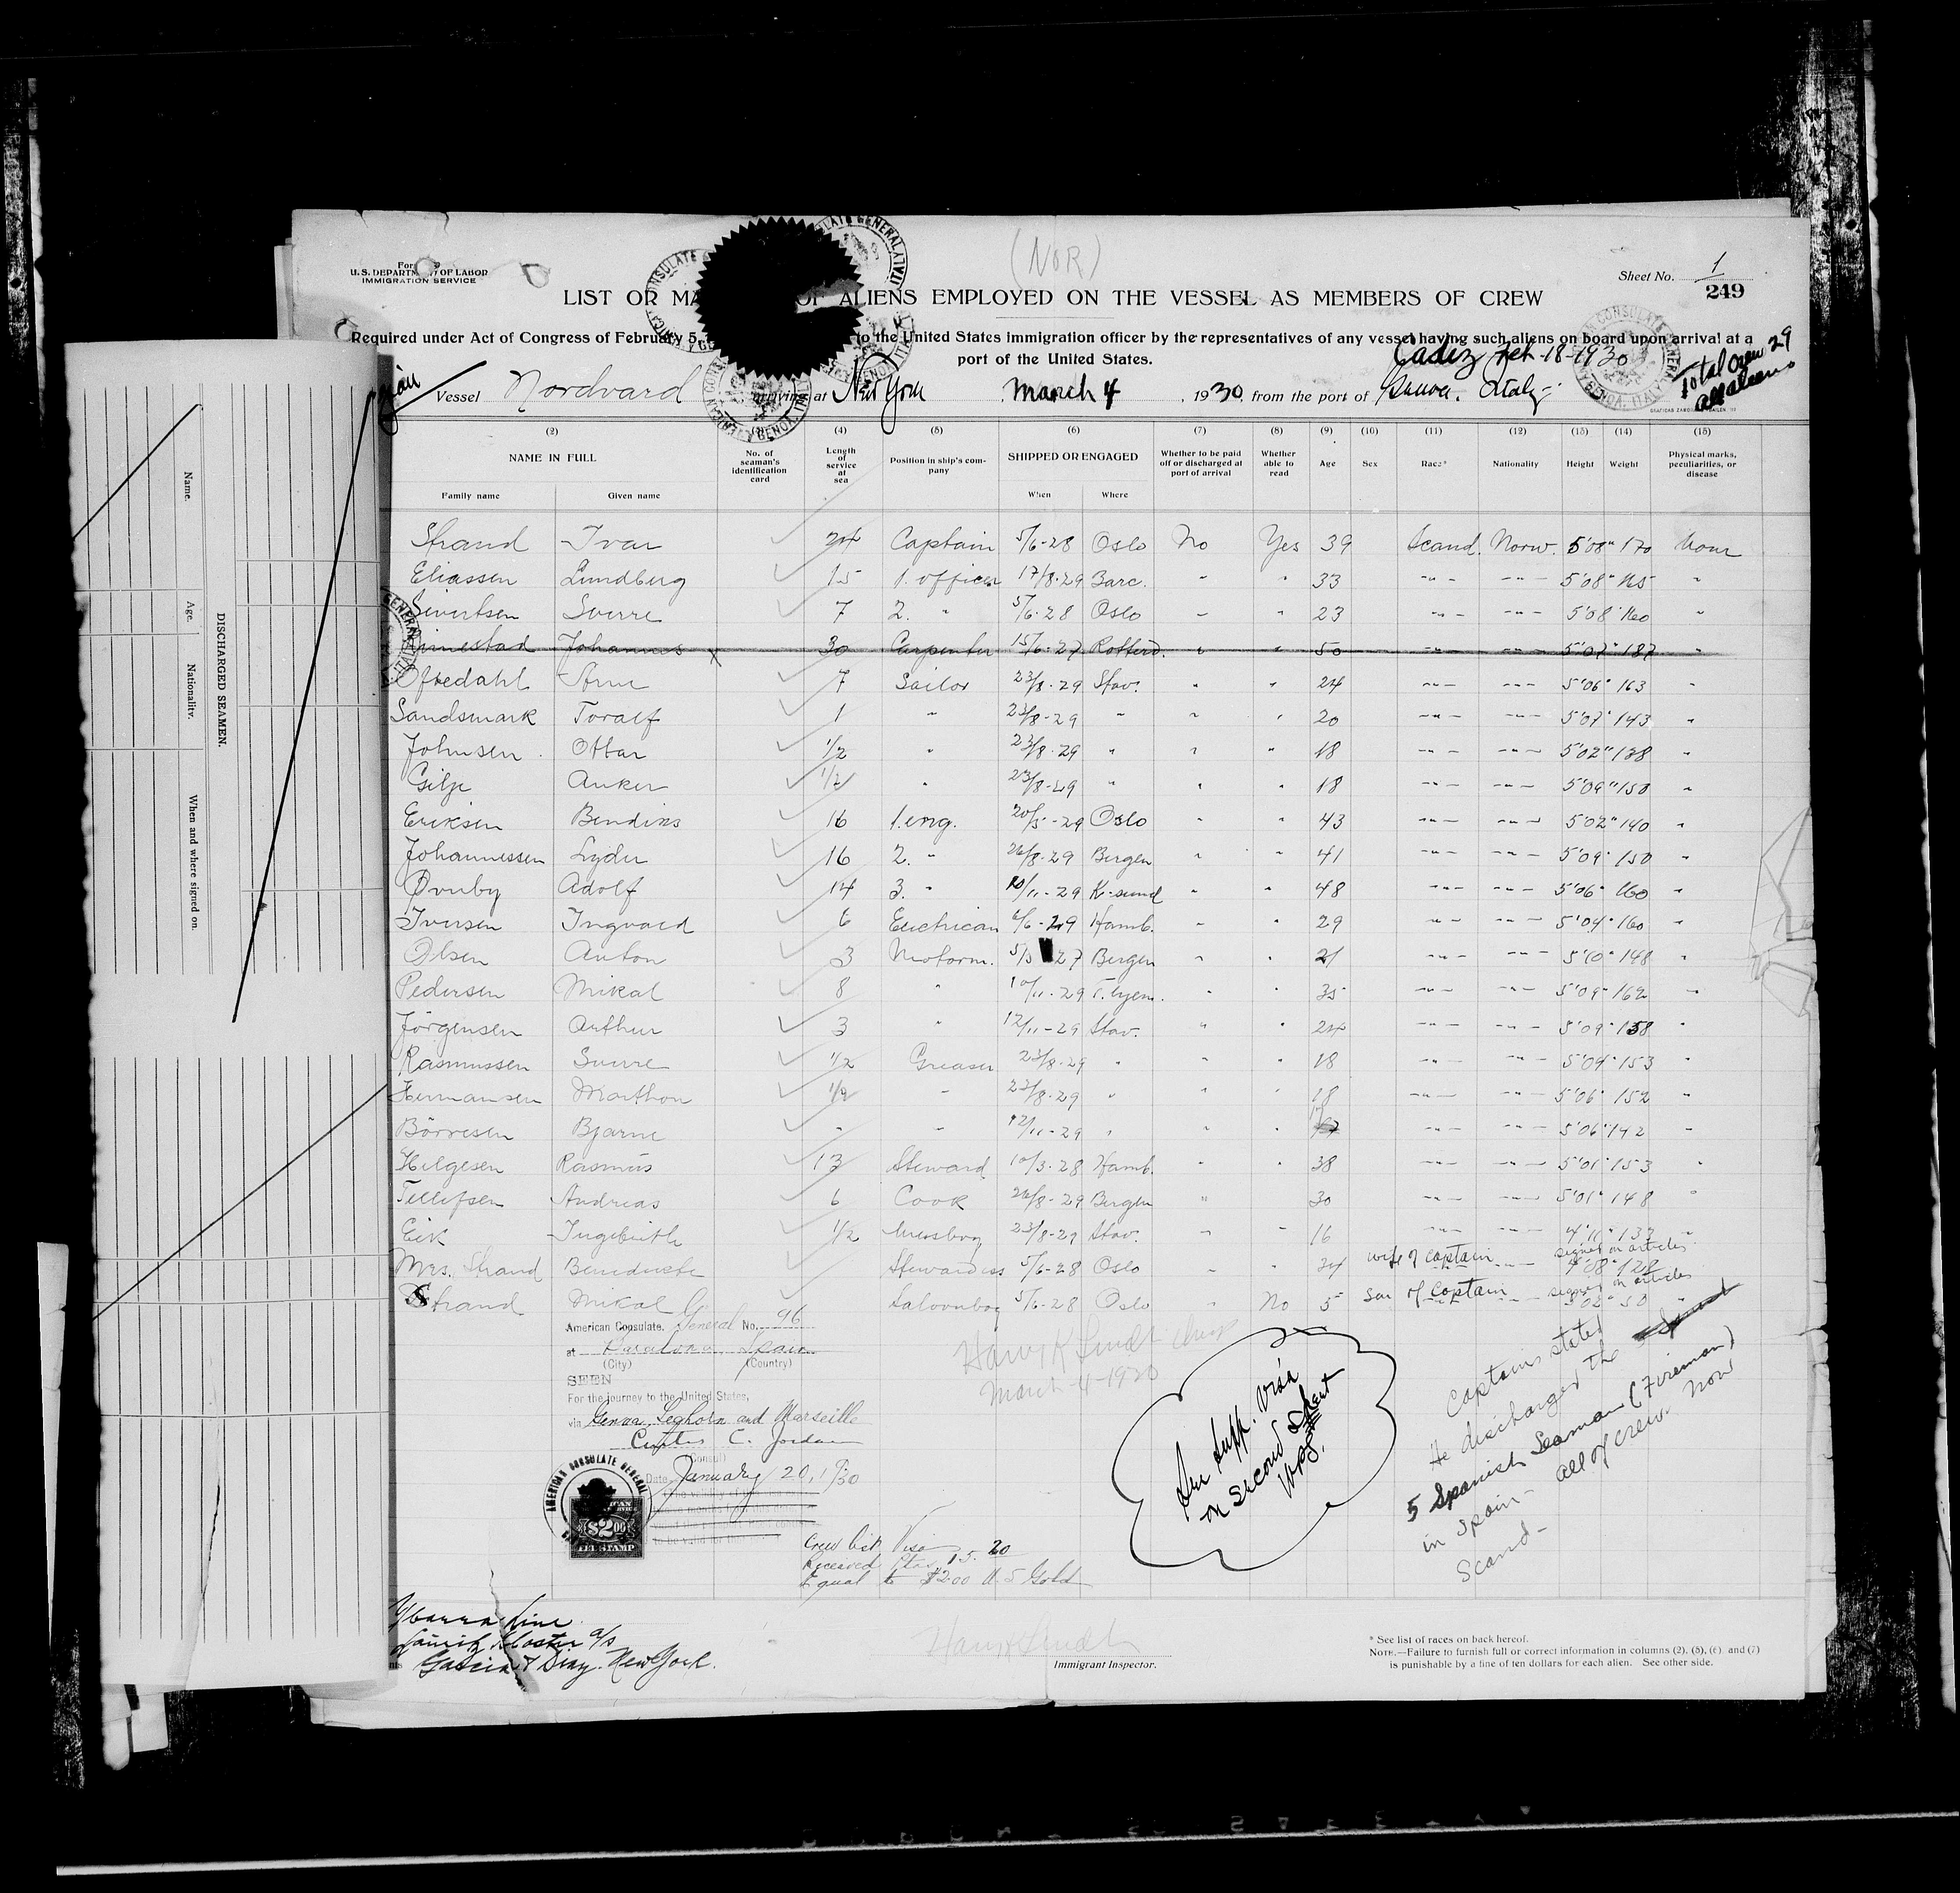 (NOR)
U. S. DEPARTMENT OF LABOR
IMMIGRATION SERVICE
Sheet No. 1
249
LIST OR MA OF ALIENS EMPLOYED ON THE VESSEL AS MEMBERS OF CREW
Required under Act of Congress of February 5, to the United States immigration officer by the representatives of any vessel having such aliens on board upon arrival at a
port of the United States.
Cadiz Feb-18-1930
Total Crew 29
all aliens
Vessel Nordvard arriving at New York March 4, 1930, from the port of Genoa. Italy
(2) (3) (4) (5) (6) (7) (8) (9) (10) (11) (12) (13) (14) (15)
NAME IN FULL No. of seaman's identification card Length of service at sea Position in ship's company SHIPPED OR ENGAGED Whether to be paid off or discharged at port of arrival Whether able to read Age Sex Race* Nationality Height Weight Physical marks, peculiarities, or disease
Family name Given name When Where
Strand Ivar 24 Captain 5/6-28 Oslo No Yes 39 Scand. Norw. 5'08" 170 None
Eliassen Lundberg 15 1. officer 17/8-29 Barc. " " 33 -"- -"- 5'08" "
Sivertsen Sverre 7 2. " 5/6-28 Oslo " " 23 -"- -"- 5'08" 160 "
Johannes 30 Carpenter 15/6-27 Rotterd. " " 50 -"- -"- 5'07" 187 "
Oftedahl Arne 7 Sailor 23/8-29 Stav. " " 24 -"- -"- 5'06" 163 "
Sandsmark Toralf 1 " 23/8-29 " " " 20 -"- -"- 5'07" 143 "
Johnsen Ottar 1/2 " 23/8-29 " " " 18 -"- -"- 5'02" 138 "
Gilje Anker 1/2 " 23/8-29 " " " 18 -"- -"- 5'09" 150 "
Eriksen Bendiks 16 1. eng. 20/5-29 Oslo " " 43 -"- -"- 5'02" 140 "
Johannessen Lyder 16 2. " 26/8-29 Bergen " " 41 -"- -"- 5'09" 150 "
Ovnby Adolf 14 3. " 10/11-29 Kr-sund " " 48 -"- -"- 5'06" 160 "
Iversen Ingvard 6 Electrician 6/6-29 Hamb. " " 29 -"- -"- 5'04" 160 "
Olsen Anton 3 Motorm. 5/3 27 Bergen " " 21 -"- -"- 5'10" 148 "
Pedersen Mikal 8 " 10/11-29 " " 35 -"- -"- 5'09" 162 "
Jörgensen Arthur 3 " 12/11-29 Stav. " " 24 -"- -"- 5'09" 158 "
Rasmussen Sverre 1/2 Greaser 23/8-29 " " " 18 -"- -"- 5'09" 153 "
Hermansen Marthon 1/2 " 23/8-29 " " " 18 -"- -"- 5'06" 152 "
Börresen Bjarne " " 12/11-29 " " " -"- -"- 5'06" 142 "
Helgesen Rasmus 13 Steward 10/3-28 Hamb. " " 38 -"- -"- 5'01" 153 "
Tellefsen Andreas 6 Cook 26/8-29 Bergen " " 30 -"- -"- 5'01" 148 "
Eik Ingebrith 1/2 Messboy 23/8-29 Stav. " " 16 -"- -"- 4'11" 137 "
Mrs. Strand Benedicte Stewardess 5/6-28 Oslo " " 34 wife of captain signed on articles 128
Strand Mikal Saloonboy 5/6-28 Oslo " No 5 son of captain signed on articles 3'02" 50 "
American Consulate General No. 96
at Barcelona Spain
(City) (Country)
SEEN
For the journey to the United States,
via Genoa, Leghorn and Marseille
Curtis C. Jordan
(Consul)
Date January 20, 1930
AMERICAN CONSULATE GENERAL
$2.00
FEE STAMP
Crew list Visa
Received Ptas. 15.20
Equal to $2.00 U.S Gold
March-4-1930
See Supp. visa
on second Sheet
Captain stated
He discharged the
5 Spanish Seaman (Fireman)
in Spain- all of crew now
Scand-
Ybarra Line
Garcia & Diaz. New York.
Immigrant Inspector.
* See list of races on back hereof.
NOTE.—Failure to furnish full or correct information in columns (2), (5), (6), and (7)
is punishable by a fine of ten dollars for each alien. See other side.
DISCHARGED SEAMEN.
Name. Age. Nationality. When and where signed on.